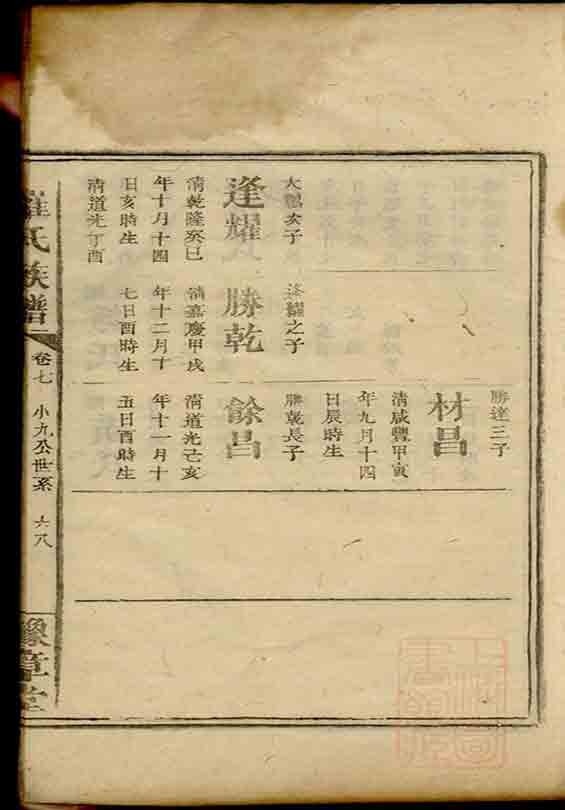 勝達三子
材昌
清咸豐甲寅
年九月十四
日辰時生
大鵾次子
逢耀
清乾隆癸巳
年十月十四
日亥時生
清道光丁酉
逢耀之子
勝乾
清嘉慶甲戌
年十二月十
七日酉時生
勝乾長子
餘昌
清道光己亥
年十一月十
五日酉時生
氏族譜
卷七
小九公世系
六八
豫章堂